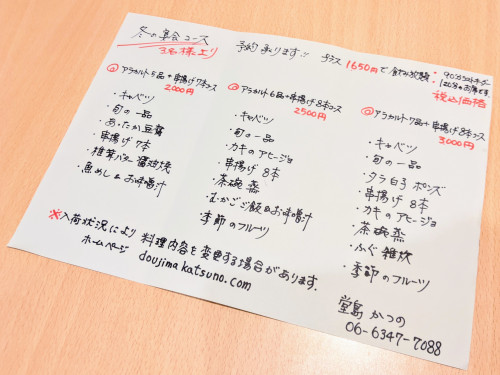 冬の宴会コース
3名様より
予約承ります
プラス1650円で飲み放題
90分ラストオーダー
120分お席です
税込価格
アラカルト5品+串揚げ7本コース
2,000円
・キャベツ
・旬の一品
・あったか豆腐
・串揚げ7本
・椎茸バター醤油焼
・魚めし&お味噌汁
アラカルト6品+串揚げ8本コース
2500円
・キャベツ
・旬の一品
・カキのアヒージョ
・串揚げ8本
・茶碗蒸
・むかごご飯&お味噌汁
・季節のフルーツ
アラカルト7品+串揚げ8本コース
3,000円
・キャベツ
・旬の一品
・タラ白子ポンズ
・串揚げ8本
・カキのアヒージョ
・茶碗蒸
・ふぐ雑炊
・季節のフルーツ
※入荷状況により料理内容を変更する場合があります。
ホームページ doujimakatsuno.com
堂島かつの
06-6347-7088